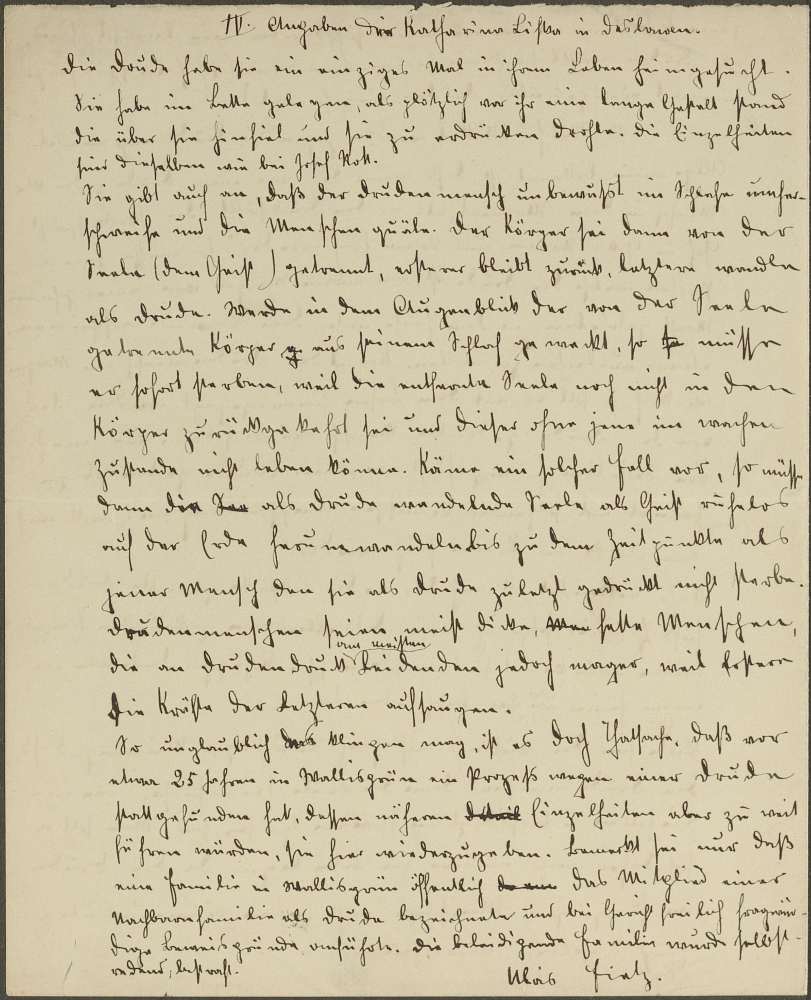 IV. Angaben der Katharina Liska in Deslawen.
Die Drude habe sie ein einziges Mal in ihrem Leben heimgesucht.
Sie habe im Bette gelegen, als plötzlich vor ihr eine lange Gestalt stand
die über sie hinfiel und sie zu erdrücken drohte. Die Einzelheiten
sind dieselben wie bei Josef Kok.
Sie gibt auch an, daß der Drudenmensch unbewußt im Schlafe umher-
schweife und die Menschen quäle. Der Körper sei dann von der
Seele (dem Geist) getrennt, ersterer bleibt zurück, letztere wandle
als Drude. Werde in dem Augenblick der von der Seele
getrennte Körper aus seinem Schlaf geweckt, so müsse
er sofort sterben, weil die entfernte Seele noch nicht in den
Körper zurückgekehrt sei und dieser ohne jene im wachen
Zustande nicht leben könne. Käme ein solcher Fall vor, so müsse
dann die als Drude wandelnde Seele als Geist ruhelos
auf der Erde herumwandeln bis zu dem Zeitpunkte als
jener Mensch den sie als Drude zuletzt gedrückt nicht sterbe.
Drudenmenschen seien meist dicke, fette Menschen,
die an Drudendruck am meisten Leidenden jedoch mager, weil Erstere
die Kräfte der Letzteren aufsaugen.
So unglaublich das klingen mag, ist es doch Thatsache, daß vor
etwa 25 Jahren in Wallisgrün ein Prozeß wegen einer Drude
stattgefunden hat, dessen näheren Einzelheiten aber zu weit
führen würden, sie hier wiederzugeben. Bemerkt sei nur daß
eine Familie in Wallisgrün öffentlich das Mitglied einer
Nachbarnfamilie als Drude bezeichnete und bei Gericht freilich fragwür-
dige Beweisgründe anführte. Die beleidigende Familie wurde selbst-
redend, bestraft.
Alois Fietz.